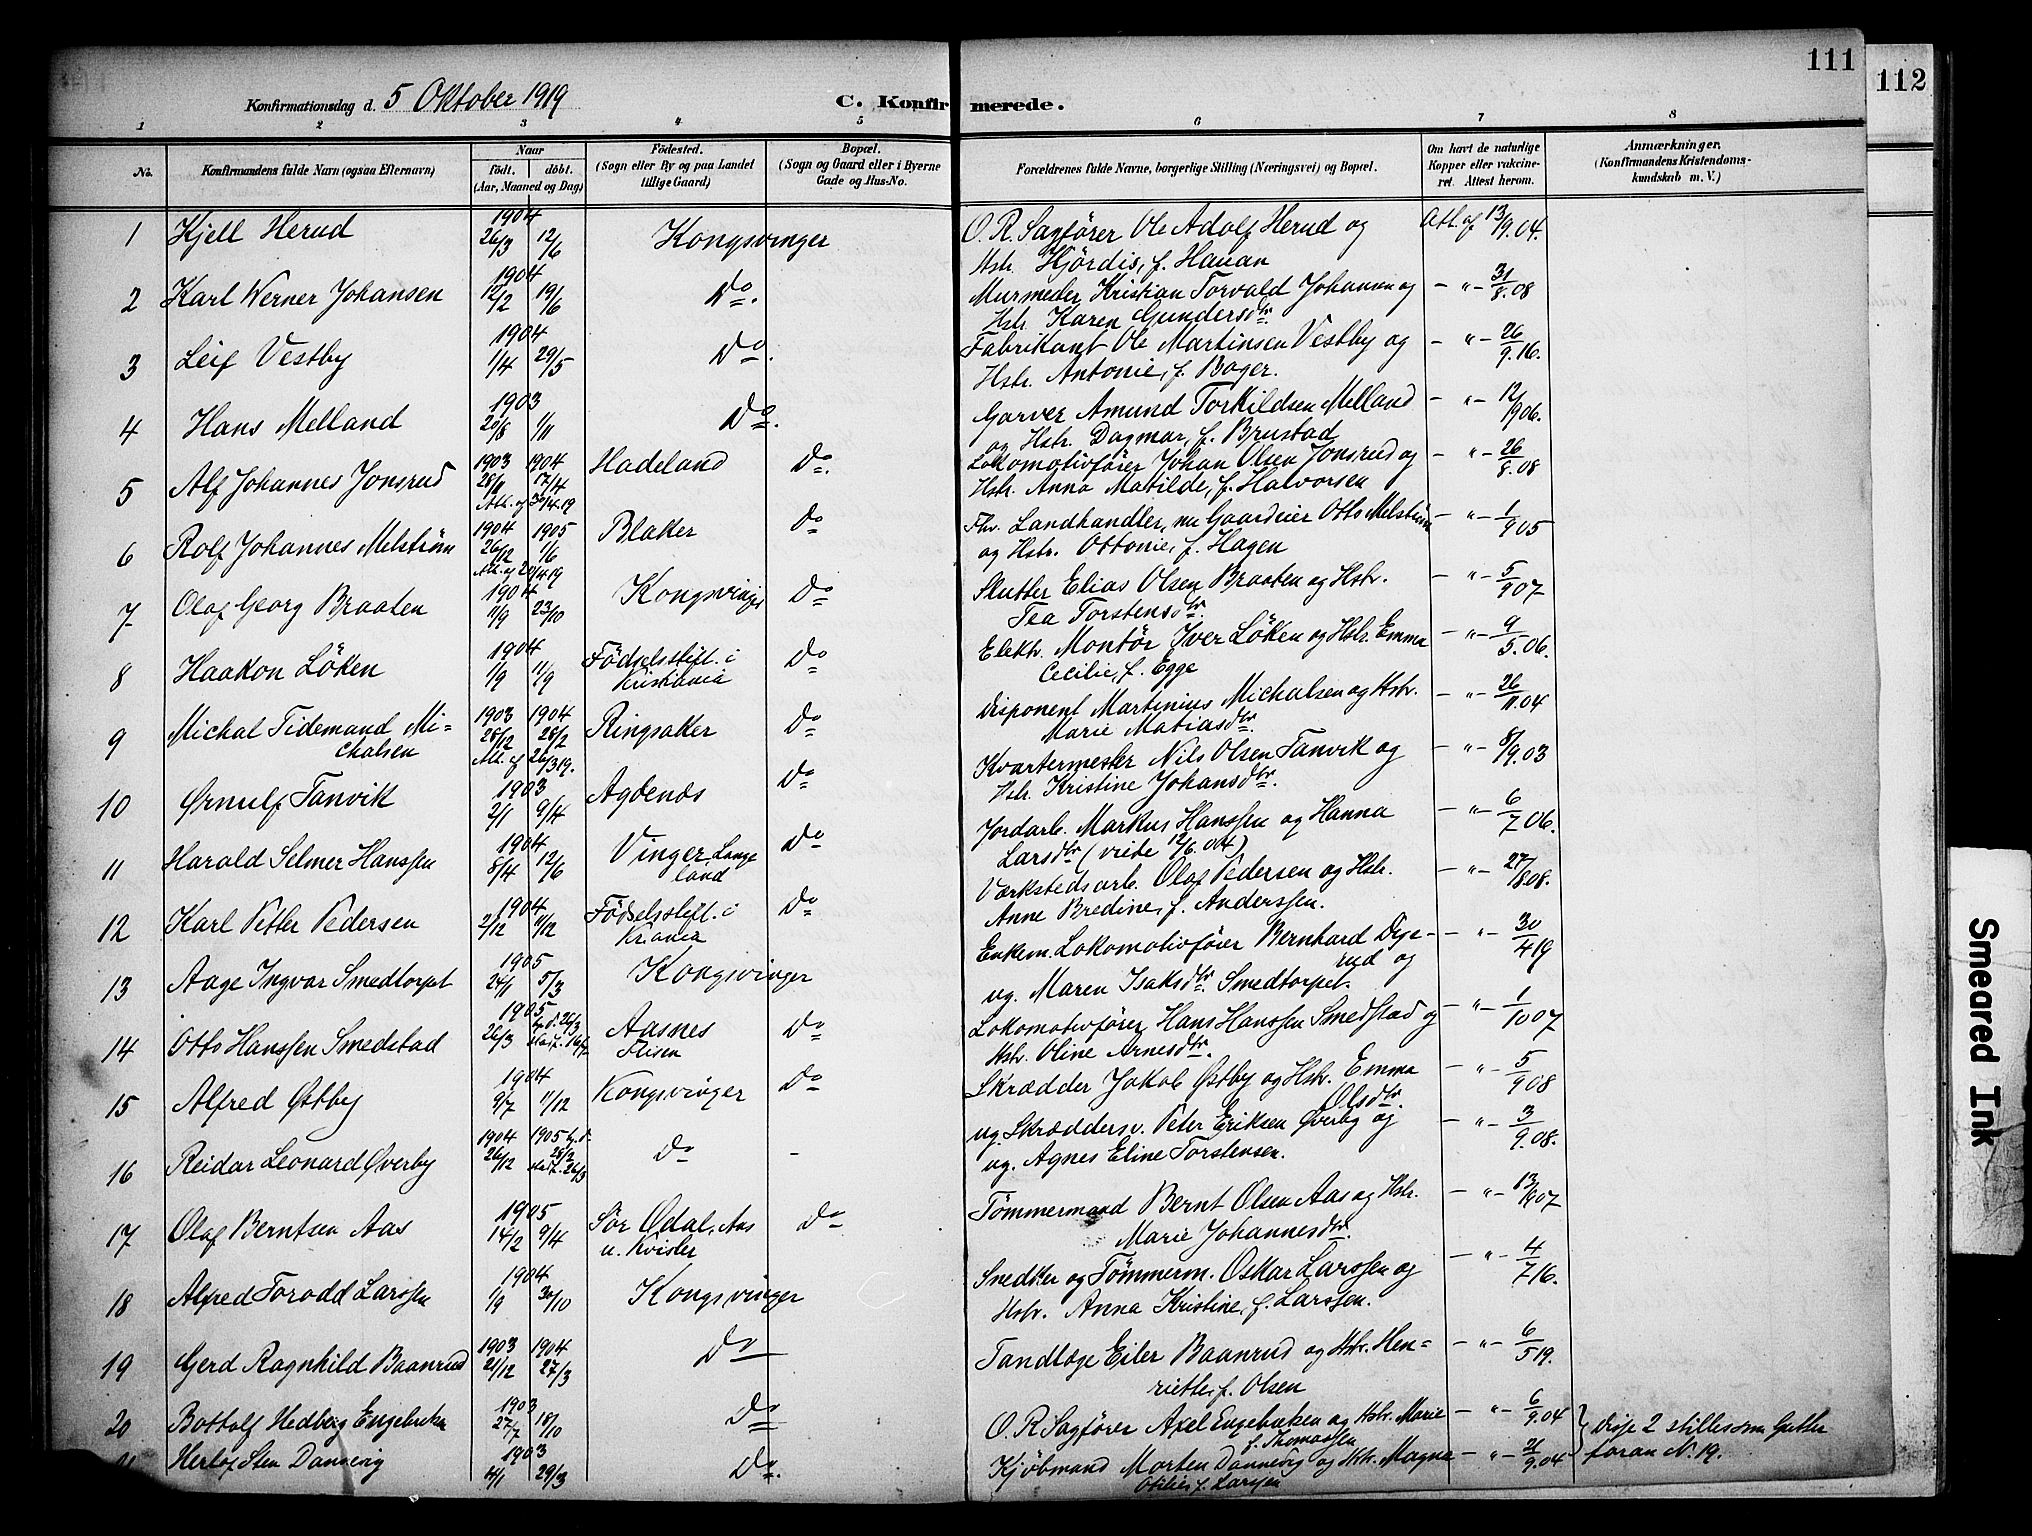 111
112
Konfirmationsdag d. 5 Oktober 1919
C. Konfirmerede.
1 2 3 4 5 6 7 8
No.
Konfirmandens fulde Navn (ogsaa Efternavn)
Naar
født. døbt.
(Aar, Maaned og Dag)
Fødested.
(Sogn eller By og paa Landet
tillige Gaard)
Bopæl.
(Sogn og Gaard eller i Byerne
Gade og Hus-No.
Forældrenes fulde Navne, borgerlige Stilling (Næringsvei) og Bopæl.
Om havt de naturlige
Kopper eller vakcine-
ret. Attest herom.
Anmærkninger.
(Konfirmandens Kristendoms-
kundskab m. V.)
1 Kjell Herud 1904 26/3 12/6 Kongsvinger O. R. Sagfører Ole Adolf Herud og Att. af 13/9.04.
Hstr. Hjördis, f. Hauan
2 Karl Werner Johansen 1904 12/2 19/6 Do. Murmester Kristian Torvald Johansen og — " — 31/8.08
Hstr. Karen Gundersdtr.
3 Leif Vestby 1904 1/4 29/5 Do. Fabrikant Ole Martinsen Vestby og — " — 26/9.16.
Hstr. Antonie, f. Boger.
4 Hans Melland 1903 20/8 1/11 Do. Garver Amund Torkildsen Melland — " — 12/906.
og Hstr. Dagmar, f. Brustad
5 Alf Johannes Jonsrud 1903 28/11 1904 17/4 Hadeland Do. Lokomotivfører Johan Olsen Jonsrud og — " — 26/8.08
Att. af 30/4.19 Hstr. Anna Matilde, f. Halvorsen
6 Rolf Johannes Melström 1904 26/12 1905 1/6 Blaker Do Fhv. Landhandler, nu Gaardeier Otto Melström — " — 1/905
Att. af 20/4.19 og Hstr. Ottonie, f. Hagen
7 Olaf Georg Braaten 1904 11/9 23/10 Kongsvinger Do Slutter Elias Olsen Braaten og Hstr. — " — 5/907
Tea Torstensdtr.
8 Haakon Löken 1904 1/9 11/9 Födselsstift. i Do Elektr. Montör Iver Löken og Hstr. Emma — " — 9/5.06.
Kristiania Cecilie, f. Egge
9 Michal Tidemand Mi= 1903 28/12 1904 28/2 Ringsaker Do Disponent Martinius Michalsen og Hstr. — " — 26/11.04
chalsen Att. af 26/319. Marie Matiasdtr.
10 Ørnulf Tanvik 1903 2/1 9/4 Agdenes Do Kvartermester Nils Olsen Tanvik og — " — 8/9.03
Hstr. Kristine Johansdtr.
11 Harald Selmer Hanssen 1904 8/4 12/6 Vinger Lange Do Jordarb. Markus Hanssen og Hanna — " — 6/706.
land Larsdtr (viede 12/6.04)
12 Karl Petter Pedersen 1904 2/12 11/12 Födselsstift. i Do Værkstedsarb. Olaf Pedersen og Hstr. — " — 27/808.
Kr.ania Anne Bredine, f. Anderssen.
13 Aage Ingvar Smedtorpet 1905 24/1 5/3 Kongsvinger Enkem. Lokomotivfører Bernhard Dyse- — " — 30/419
rud og
ug. Maren Isaksdtr. Smedtorpet.
14 Otto Hanssen Smedstad 1905 26/3 Aasnes Do Lokomotivfører Hans Hanssen Smedstad og — " — 1/1007
Flisen Hstr. Oline Arnesdtr.
15 Alfred Østby 1904 9/7 11/12 Kongsvinger Do Skrædder Jakob Østby og Hstr. Emma — " — 5/908
Olsdtr.
16 Reidar Leonard Øverby 1904 26/12 1905 Do - ug. Skræddersv. Peter Eriksen Øverby og — " — 3/9.08.
ug. Agnes Eline Torstensen.
17 Olaf Berntsen Aas 1905 14/2 9/4 Sör Ødal, Aas Do Tömmermand Bernt Olsen Aas og Hstr. — " — 13/907
u. Kvisler Marie Johannesdtr.
18 Alfred Torodd Larssen 1904 1/9 30/10 Kongsvinger Snedker og Tömmerm. Oskar Larssen og — " — 4/716.
Hstr. Anna Kristine, f. Larssen.
19 Gerd Ragnhild Baanrud 1903 21/12 1904 27/3 Do Tandlæge Eiler Baanrud og Hstr. Hen= — " — 6/519.
riette, f. Olsen
20 Bottolf Hedberg Engebretsen 1903 27/7 18/10 Do O. R. Sagfører Axel Engebretsen og Hstr. Marie — " — 6/9.04 } Disse 2 stilles som Gutter
f. Thomassen
Herlof Sten Dannevig 1903 4/1 29/3 Do. Kjøbmand Morten Dannevig og Hstr. Magna — " — 21/9.04 foran N. 19.
Otilie, f. Larssen
Smeared Ink